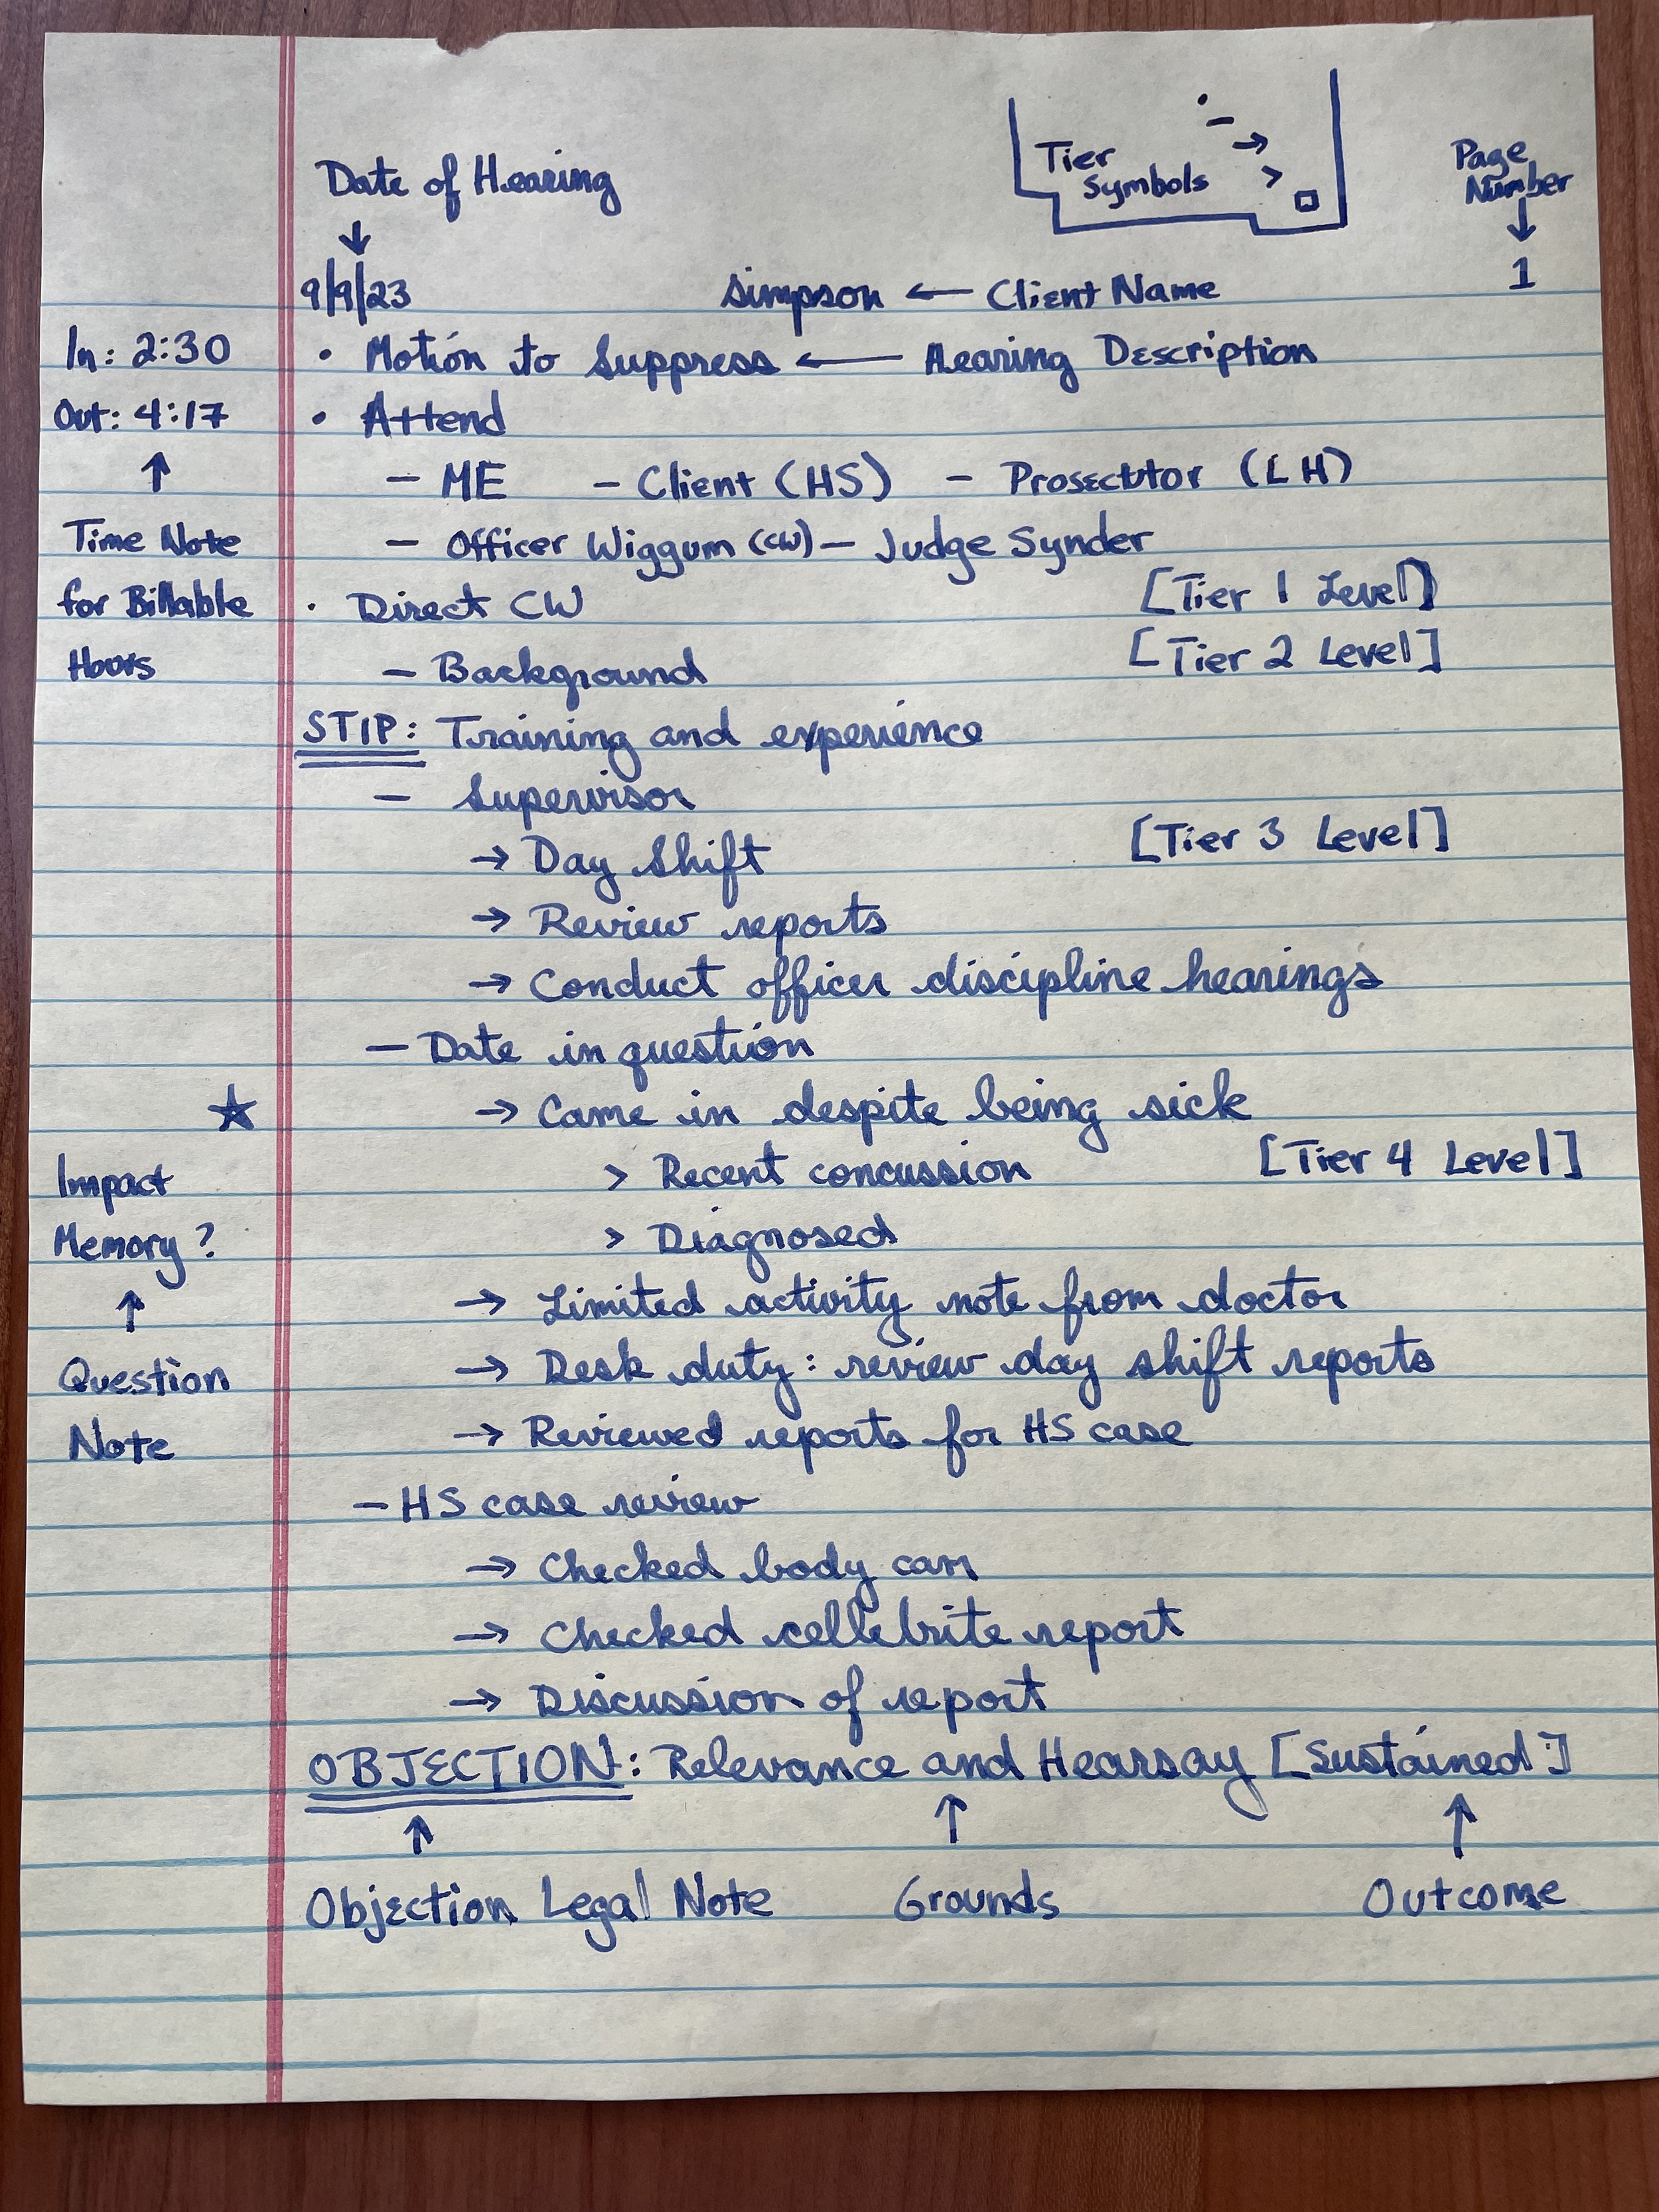 Date of Hearing
↓
Tier
Symbols
• – → > □
Page
Number
↓
9/9/23 Simpson ← Client Name 1
In: 2:30 • Motion to Suppress ← Hearing Description
Out: 4:17 • Attend
↑ – ME – Client (HS) – Prosecutor (LH)
Time Note – Officer Wiggum (CW) – Judge Synder
for Billable • Direct CW [Tier 1 Level]
Hours – Background [Tier 2 Level]
STIP: Training and experience
– Supervisor
→ Day shift [Tier 3 Level]
→ Review reports
→ Conduct officer discipline hearings
– Date in question
☆ → Came in despite being sick
Impact > Recent concussion [Tier 4 Level]
Memory? > Diagnosed
↑ → Limited activity note from doctor
Question → Desk duty: review day shift reports
Note → Reviewed reports for HS case
– HS case review
→ Checked body cam
→ Checked cellebrite report
→ Discussion of report
OBJECTION: Relevance and Hearsay [Sustained]
↑ ↑ ↑
Objection Legal Note Grounds Outcome